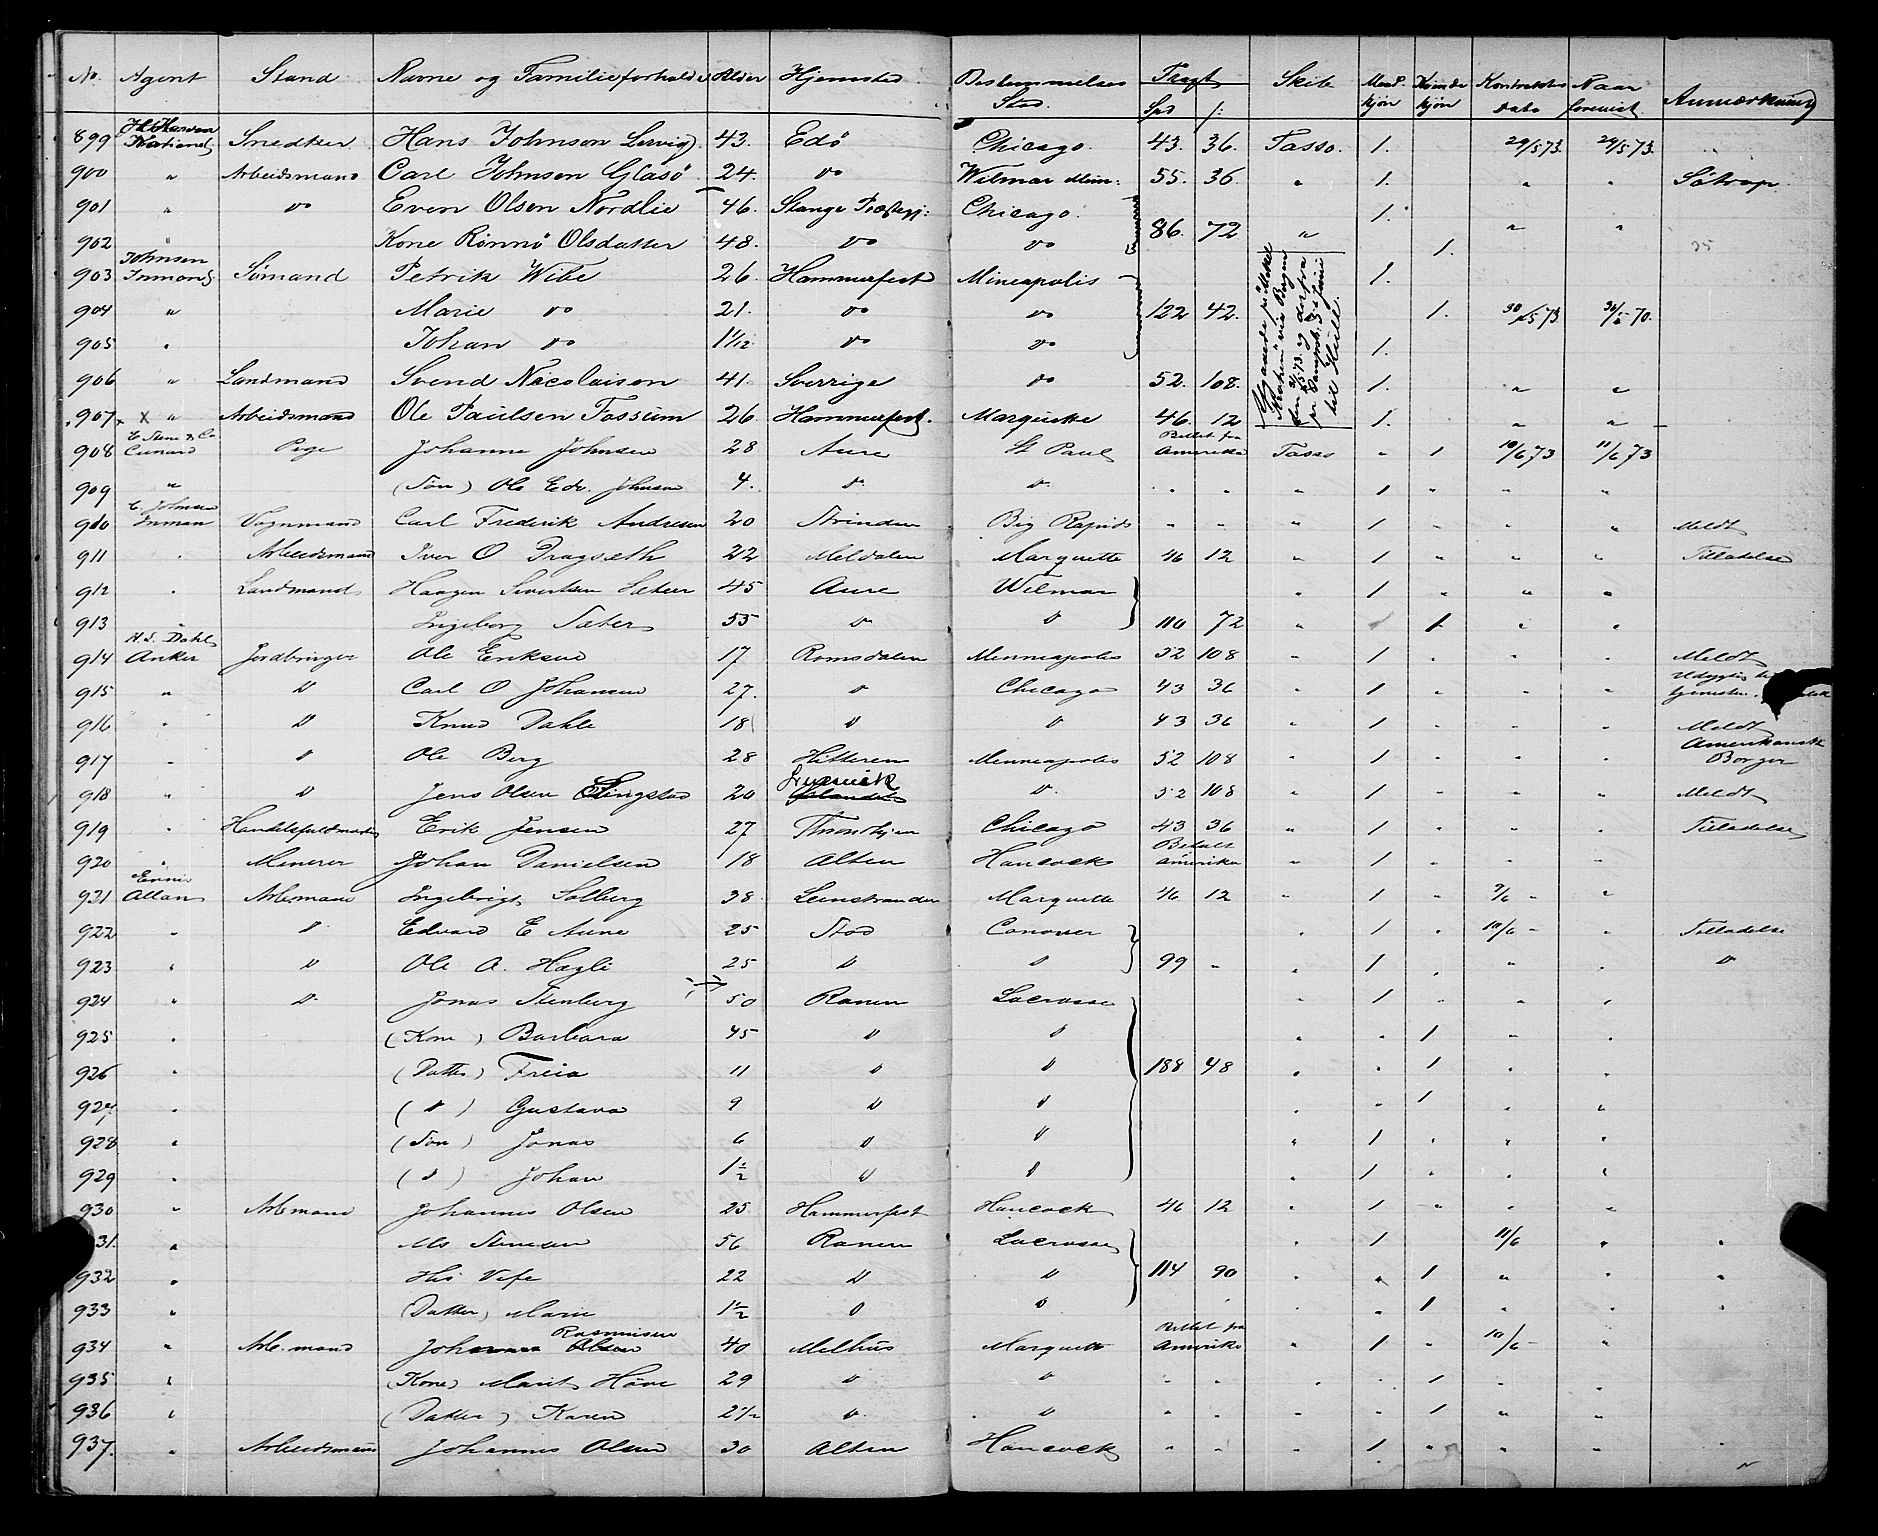 No. Agent Stand Navne og Familieforhold Alder Hjemsted Bestemmelses Sted. Fragt Spd /: Skib Mand kjøn Kvinde kjøn Kontrakts dato Naar forevist. Anmærkning
899 Smedker Hans Johnson Lervig 43. Edö Chicago. 43. 36. Tasso. 1. 29/5 73. 29/5 73.
900 " Arbeidsmand Carl Johnsen Glasö 24. do Wilmar Min: 55. 36. " 1. " "
901 " do Even Olsen Nordlie 46. Stange Chicago. 1.
902 " Kone Rönnö Olsdatter 48. do do 86. 72 " 1. " " 35
Johnsen
903 Inman Sømand Petrik Wibe 26. Hammerfest Mineapolis 1.
904 " Marie do 21. do do 122 42. 1. 30/5 73
905 " Johan do 1 1/12 do do 1.
906 " Landmand Svend Nicolaison 41. Sverrige do 52. 108. 1. " "
907 x " Arbeidsmand Ole Paulsen Fossum 26. Hammerfest. Marquette 46. 12 1. " "
til Hull.
908 Cunard Pige Johanne Johnsen 28 Aure St Paul Billet fra Amerika Tasso " 1 10/6 73 11/6 73
909 " (Søn) Ole Edv. Johnsen 4. do do " " " 1 " " "
C. Johnsen
910 Inman Vognmand Carl Frederik Andresen 20 Strinden Big Rapids " " " 1 " " " Meldt
911 " Arbeidsmand Iver O Dragseth 22 Meldalen Marquette 46 12 " 1 " " " Tilladelse
912 " Landmand Haagen Sivertsen Sæter 45 Aure Wilmar " 1 " " "
913 " Ingeborg Sæter 55 do do 110 72 " 1 " "
H. S. Dahl
914 Anker Jordbruger Ole Eriksen 17 Romsdalen Minneapolis 52 108 " 1 " " " Meldt
915 " do Carl O Johansen 27. do Chicago 43 36 " 1 " " "
916 " do Knud Dahle 18 do do 43 36 " 1 " " " Meldt
917 " do Ole Berg 28 Hitteren Minneapolis 52 108 " 1 " " " Amerikansk Borger
918 " do Jens Olsen Elingstad 20 do 52 108 " 1 " " " Meldt
919 " Erik Jensen 27 Throndhjem Chicago 43 36 " 1 " " " Tilladelse
920 " Minerer Johan Danielsen 18 Alten Hancock Betalt Amerika " 1 " " "
921 Allan Arb.mand Ingebrigt Solberg 38 Leinstranden Marquette 46 12 " 1 " 9/6 " "
922 " do Edvard E Aune 25 Stod Conover " 1 " 10/6 " " Tilladelse
923 " do Ole A. Hægli 25 do do 99 " " 1 " " " do
924 " do Jonas Stenberg 50 Ranen Lacrosse " 1 " " "
925 " (Kone) Barbara 45 do do " " 1 " "
926 " (Datter) Freia 11 do do 188 48 " " 1 " "
927 " (do) Gustava 9 do do " " 1 " "
928 " (Søn) Jonas 6 do do " 1 " " "
929 " (do) Johan 1 1/2 do do " 1 " " "
930 " Arb.mand Johannes Olsen 25 Hammerfest Hancock 46 12 " 1 " " "
931. " Ms Stensen 56 Ranen Lacrosse " 1 11/6 " "
932 " His Vife 22 do do 114 90 " " 1 " " "
933 " (Datter) Marie 1 1/2 do do " 1 " " "
934 " Arb. mand Johannes Olsen Rasmusen 40 Melhus Marquette Billet fra Amerika " 1 " 10/6 "
935 " (Kone) Marit Höve 29 do do " " " " 1 " "
936 " (Datter) Karen 2 1/2 do do " " " " 1 " "
937. " Arbeidsmand Johannes Olsen 30 Alten Hancock " " " 1 " " "